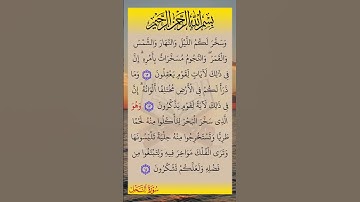 بِسْمِ اللَّهِ الرَّحْمَٰنِ الرَّحِيمِ
وَسَخَّرَ لَكُمُ اللَّيْلَ وَالنَّهَارَ وَالشَّمْسَ
وَالْقَمَرَ ۖ وَالنُّجُومُ مُسَخَّرَاتٌ بِأَمْرِهِ ۗ إِنَّ
فِي ذَٰلِكَ لَآيَاتٍ لِقَوْمٍ يَعْقِلُونَ ١٢ وَمَا
ذَرَأَ لَكُمْ فِي الْأَرْضِ مُخْتَلِفًا أَلْوَانُهُ ۗ إِنَّ
فِي ذَٰلِكَ لَآيَةً لِقَوْمٍ يَذَّكَّرُونَ ١٣ وَهُوَ
الَّذِي سَخَّرَ الْبَحْرَ لِتَأْكُلُوا مِنْهُ لَحْمًا
طَرِيًّا وَتَسْتَخْرِجُوا مِنْهُ حِلْيَةً تَلْبَسُونَهَا
وَتَرَى الْفُلْكَ مَوَاخِرَ فِيهِ وَلِتَبْتَغُوا مِنْ
فَضْلِهِ وَلَعَلَّكُمْ تَشْكُرُونَ ١٤
سُورَةُ النَّحْل